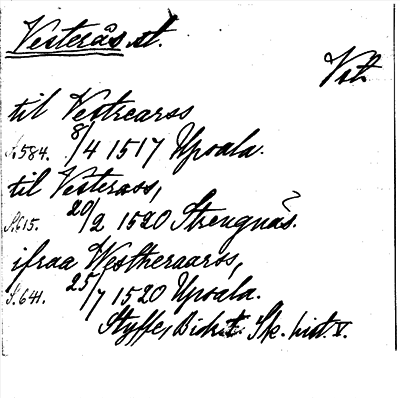 Vesterås st.
Vst.
til Vestrearos
S. 584. 8/4 1517 Upsala.
til Vesteraos,
S. 615. 20/2 1520 Strengnäs.
ifraa Westheraaros,
S. 641. 25/7 1520 Upsala.
Styffe, Bidr. t. Sk. hist. V.